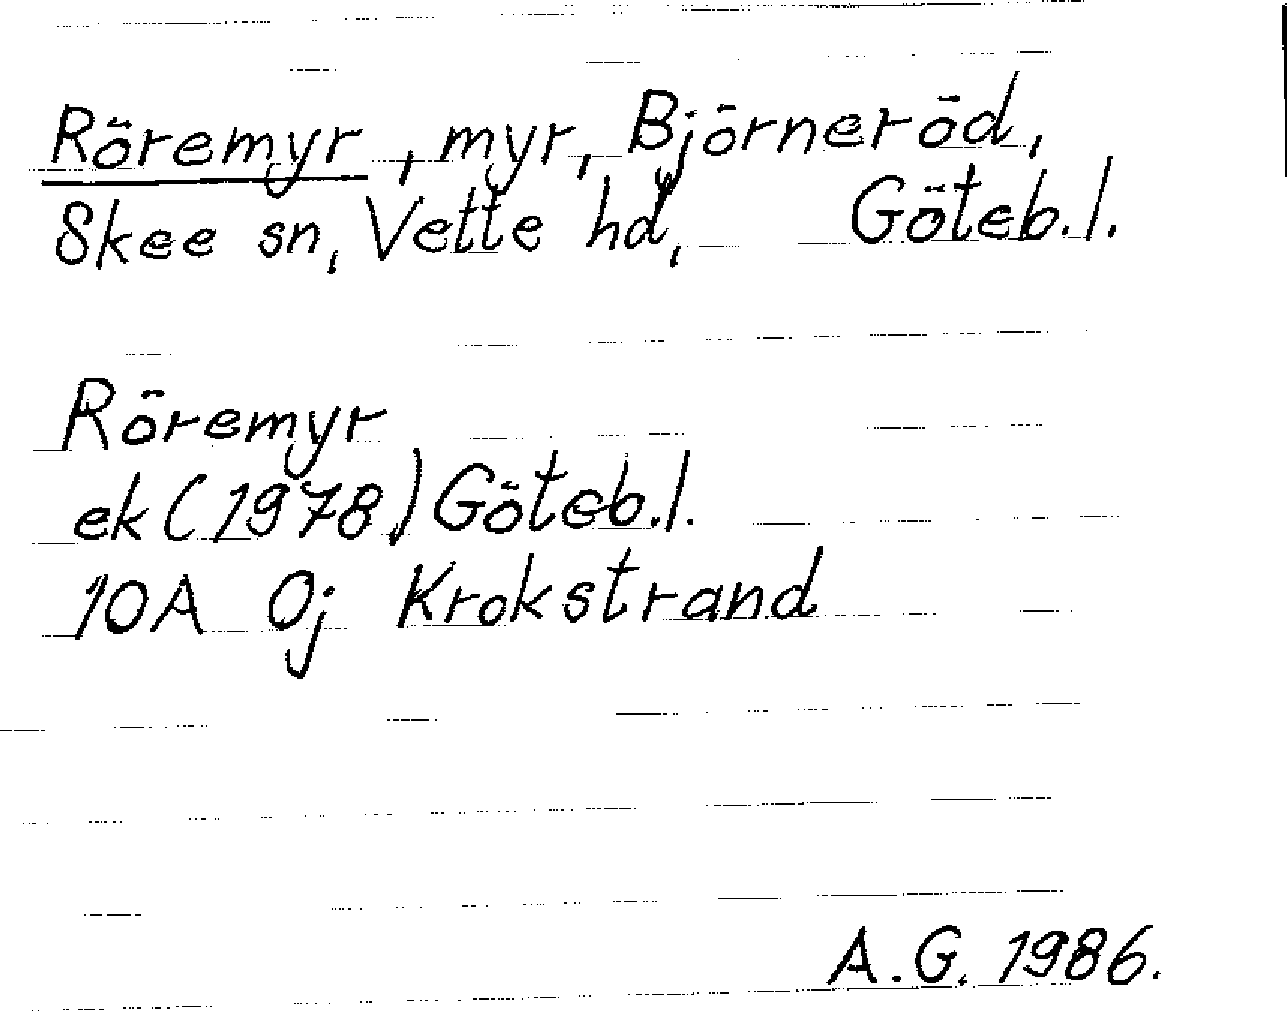 Röremyr, myr, Björneröd,
Skee sn, Vette hd, Göteb.l.
Röremyr
ek (1978) Göteb.l.
10A 0j Krokstrand
A.G. 1986.